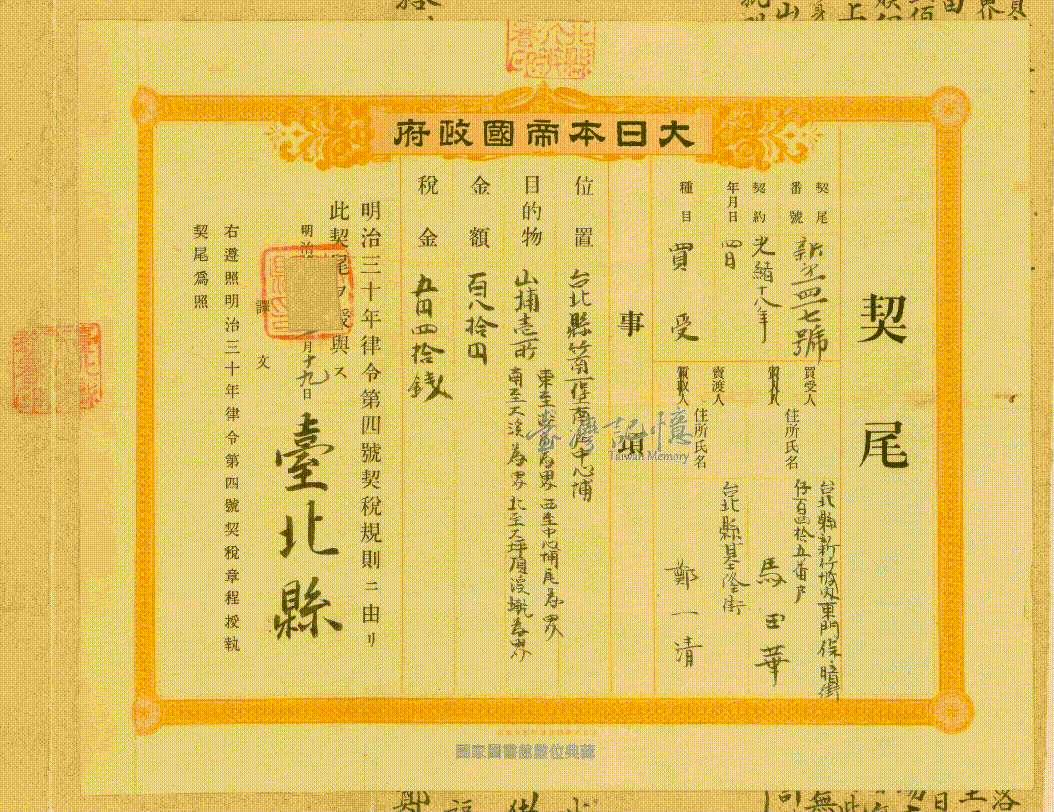 大日本帝國政府
契尾
契尾番號
新第四一七號
契約年月日
光緒十八年
四日
種目
買受
買受人
住所氏名
台北縣新竹城內東門保暗街
仔百四拾五番戶
馬玉華
賣渡人
住所氏名
台北縣基隆街
鄭一清
事項
位置
台北縣竹南一堡南隘中心埔
目的物
山埔壱所
東至
為界 西至中心埔尾為界
南至大溪為界 北至大坪頂崁眉為界
金額
百八拾四
稅金
五円四拾錢
明治三十年律令第四號契稅規則ニ由リ
此契尾ヲ授與ス
明治
月十九日
臺北縣
譯文
右遵照明治三十年律令第四號契稅章程授執
契尾爲照
臺灣記憶
Taiwan Memory
國家圖書館數位典藏